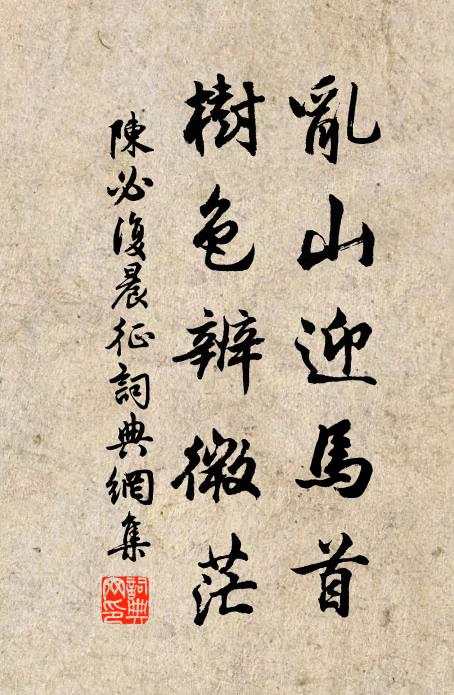 亂山迎馬首
樹色辨微茫
陳必復晨征詞典網集
詞典
网印